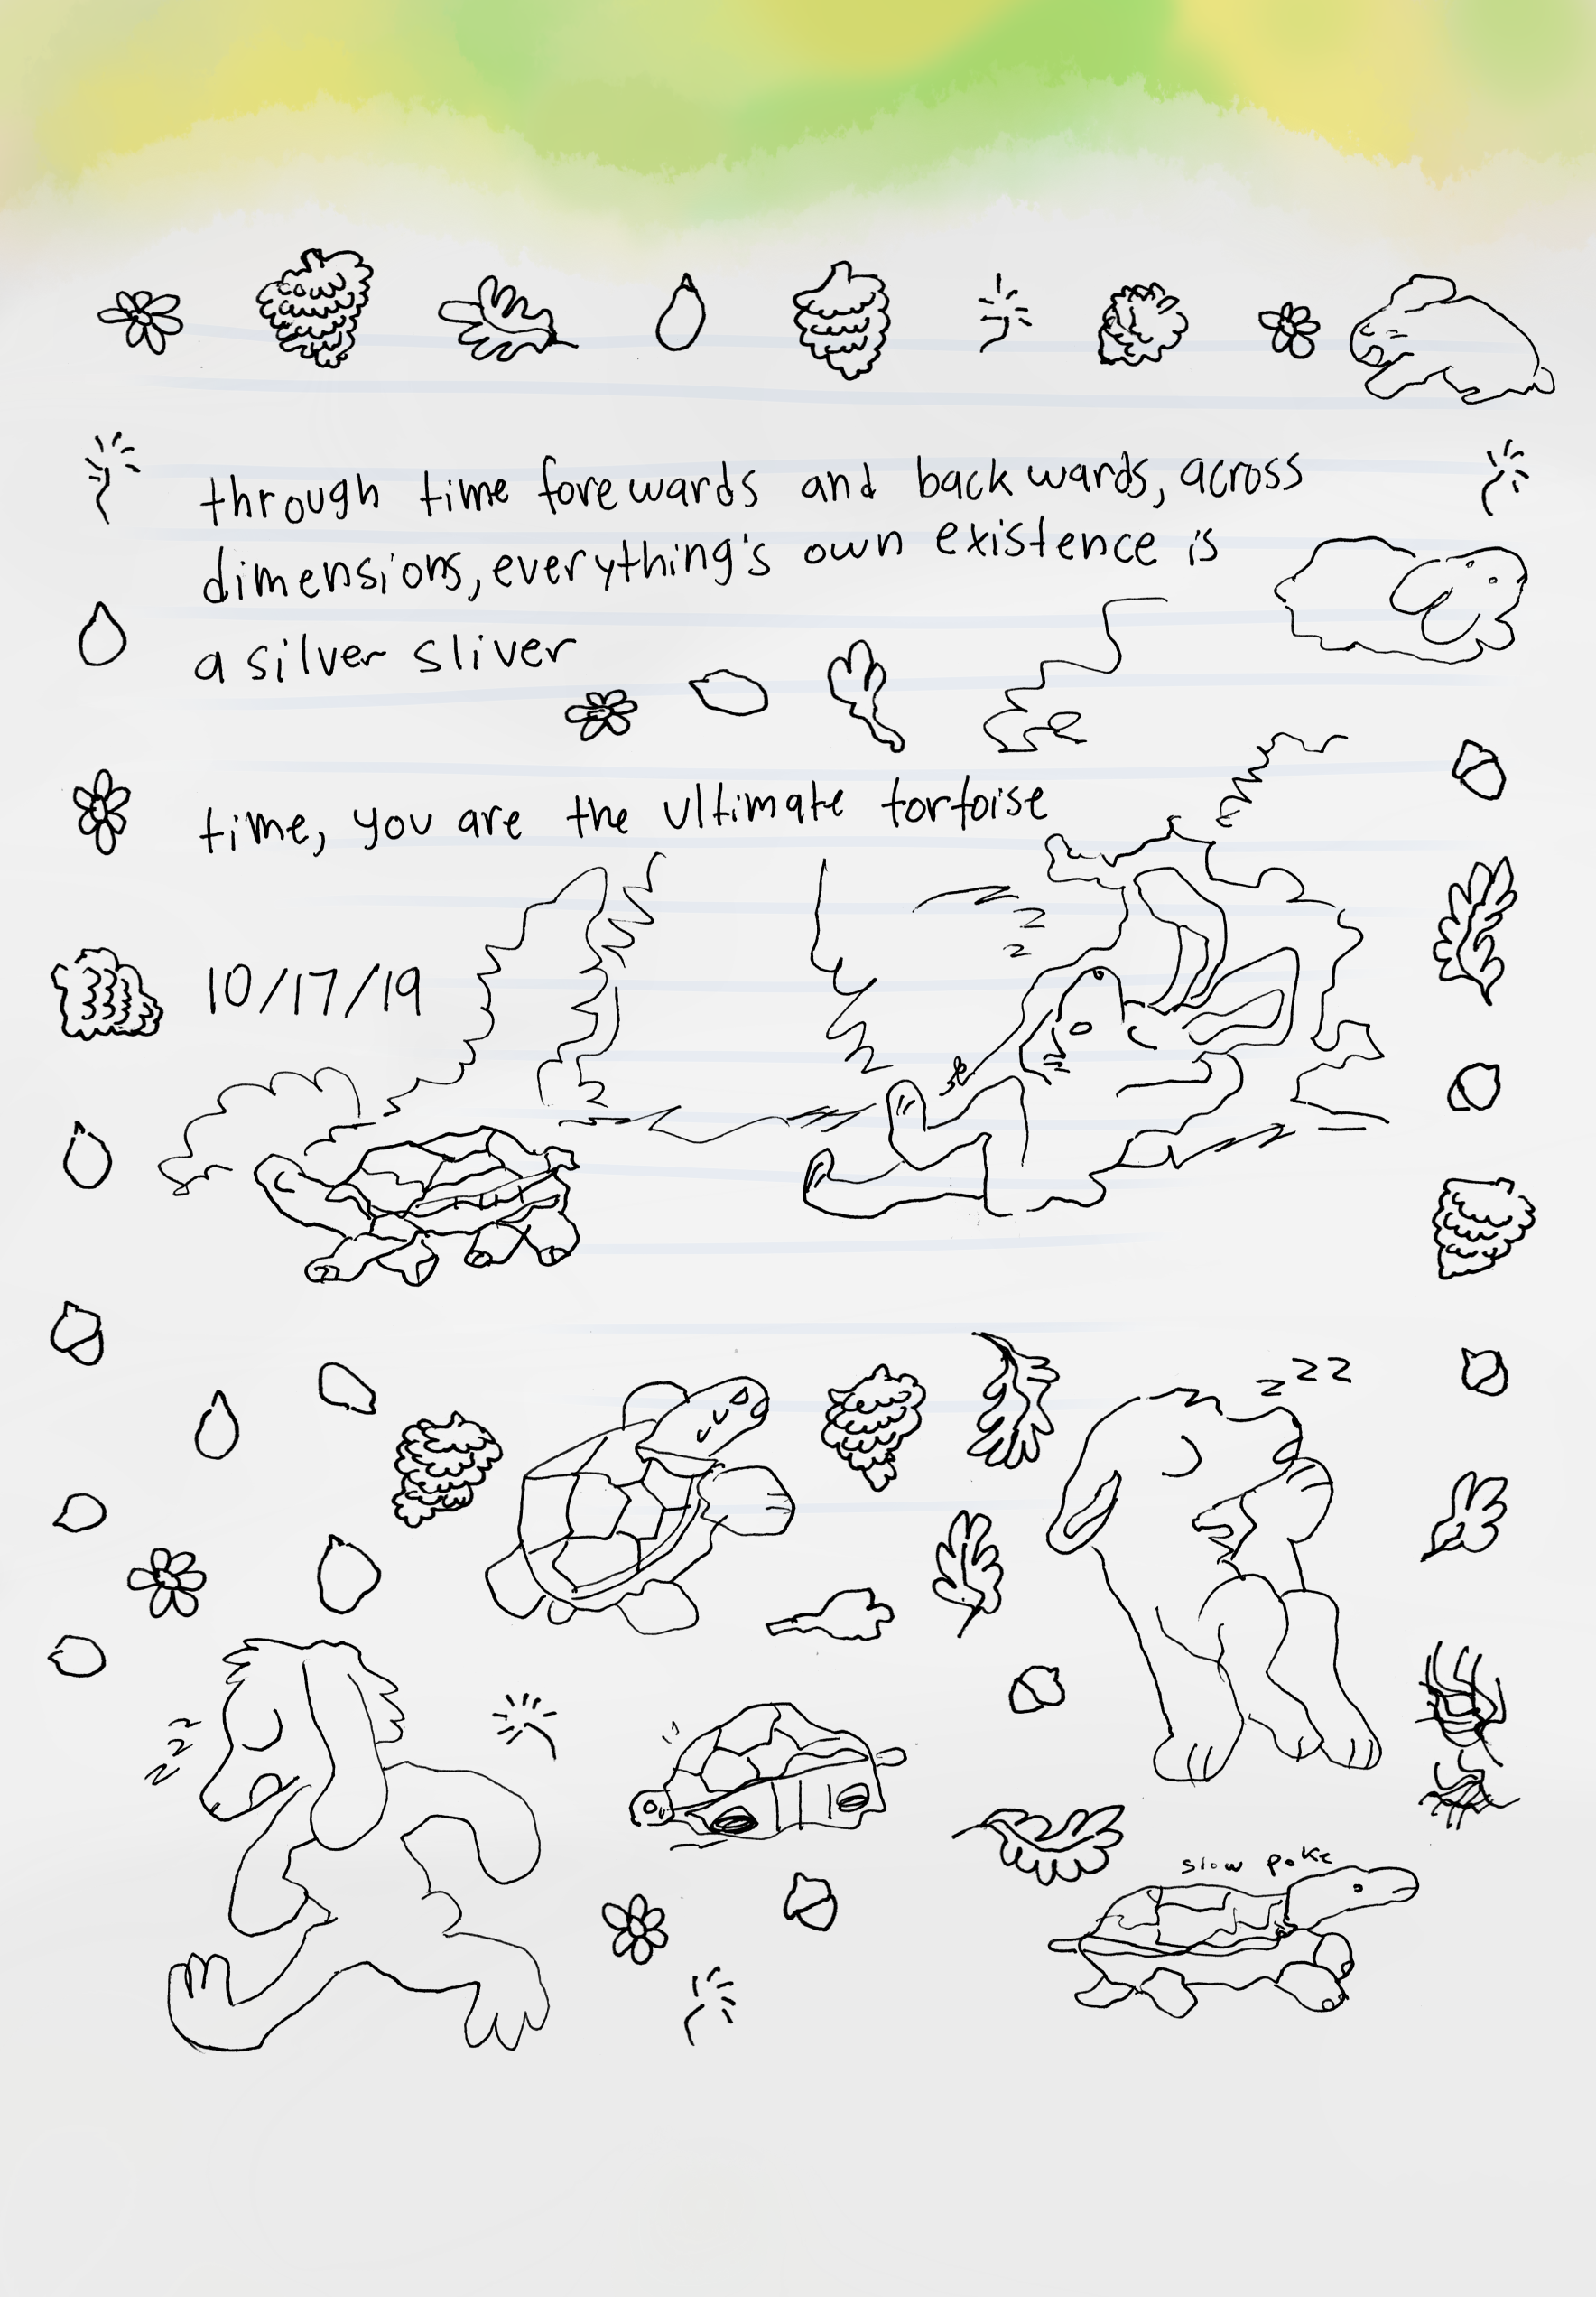 through time forewards and backwards, across
dimensions, everything's own existence is
a silver sliver
time, you are the ultimate tortoise
z
z
10/17/19
zzz
zzz
slow poke